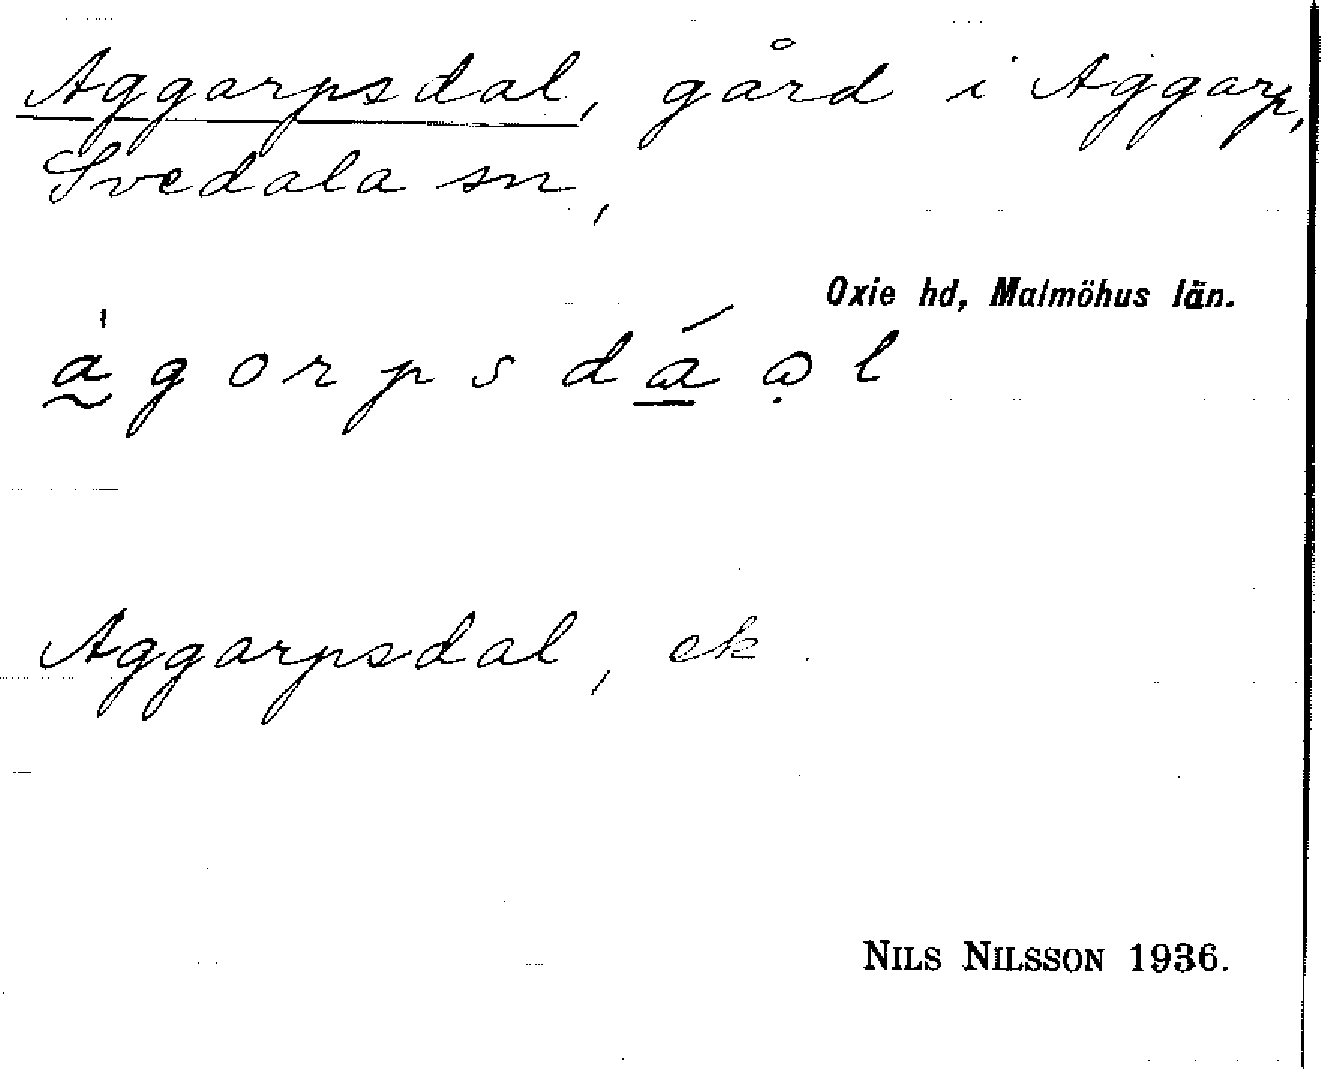 Aggarpsdal, gård i Aggarp,
Svedala sn,
Oxie hd, Malmöhus län.
àgorpsdáọl
Aggarpsdal, ek.
NILS NILSSON 1936.